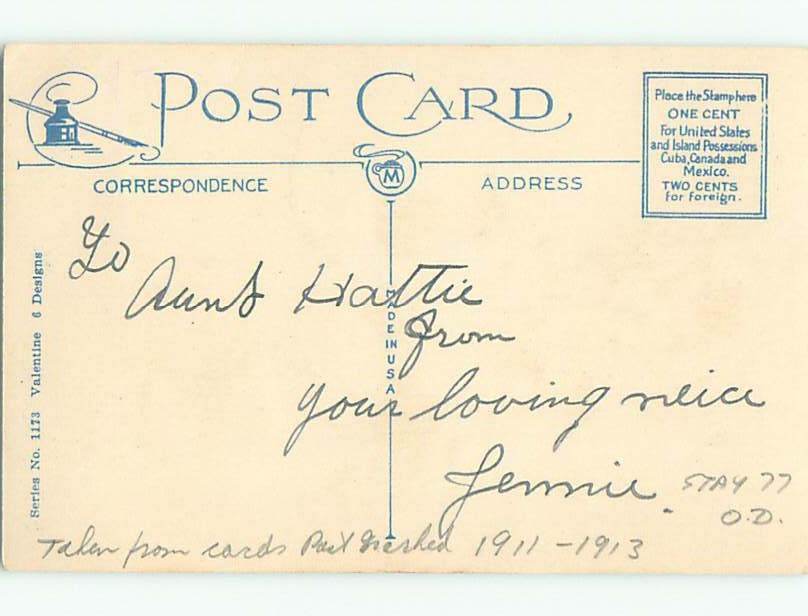 POST CARD
CORRESPONDENCE
M
ADDRESS
Place the Stamp here
ONE CENT
For United States
and Island Possessions
Cuba, Canada and
Mexico.
TWO CENTS
for foreign.
Series No. 1173 Valentine 6 Designs
MADE IN USA
To
Aunt Hattie
from
Your loving neice
Jennie
STAY 77
O.D.
Taken from cards Post Marked 1911 - 1913